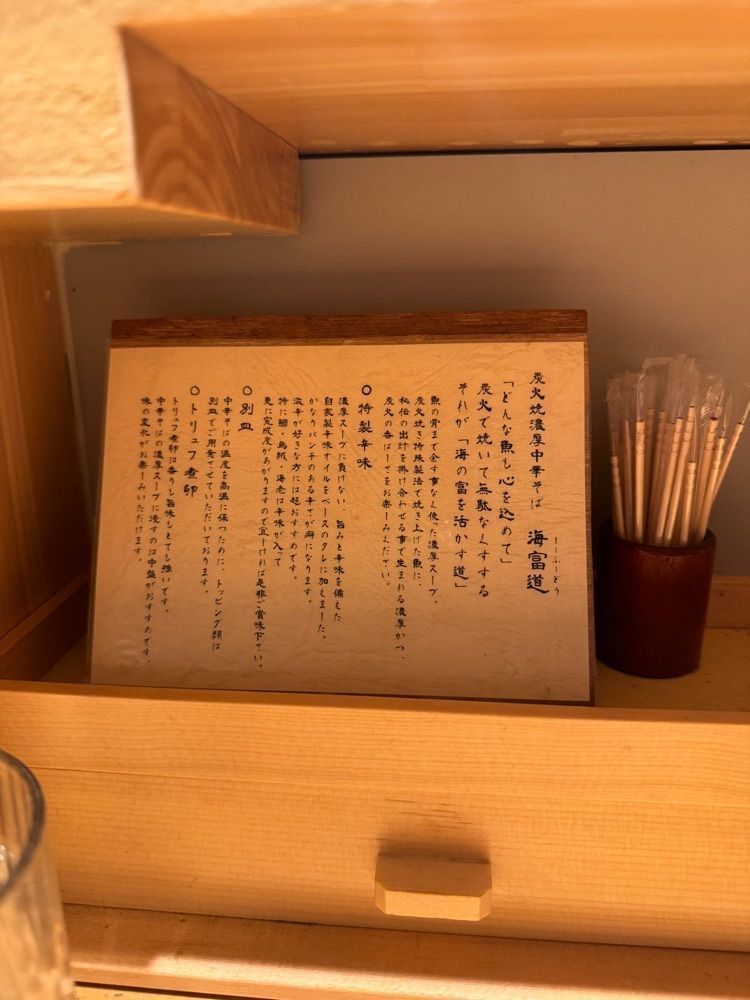 炭火焼濃厚中華そば 海富道
とーふーどう
「どんな魚も心を込めて」
炭火で焼いて無駄なくする
それが「海の富を活かす道」
魚の骨まで余す事なく使った濃厚スープ。
炭火焼き特殊製法で焼き上げた魚に、
秘伝の出汁を掛け合わせる事で生まれる濃厚かつ、
炭火の香ばしさをお楽しみください。
○特製辛味
濃厚スープに負けない、旨みと辛味を備えた
自家製辛味オイルをベースのタレに加えました。
かなりパンチのある辛さが癖になります。
激辛が好きな方には超おすすめです。
特に鯛・烏賊・海老は辛味が入って
更に完成度があがりますので宜しければ是非ご賞味下さい。
○別皿
中華そばの温度を高温に保つために、トッピング類は
別皿でご用意させていただいております。
○トリュフ煮卵
トリュフ煮卵は香りも旨味もとても強いです。
中華そばの濃厚スープに浸すのは中盤がおすすめです。
味の変化がお楽しみいただけます。